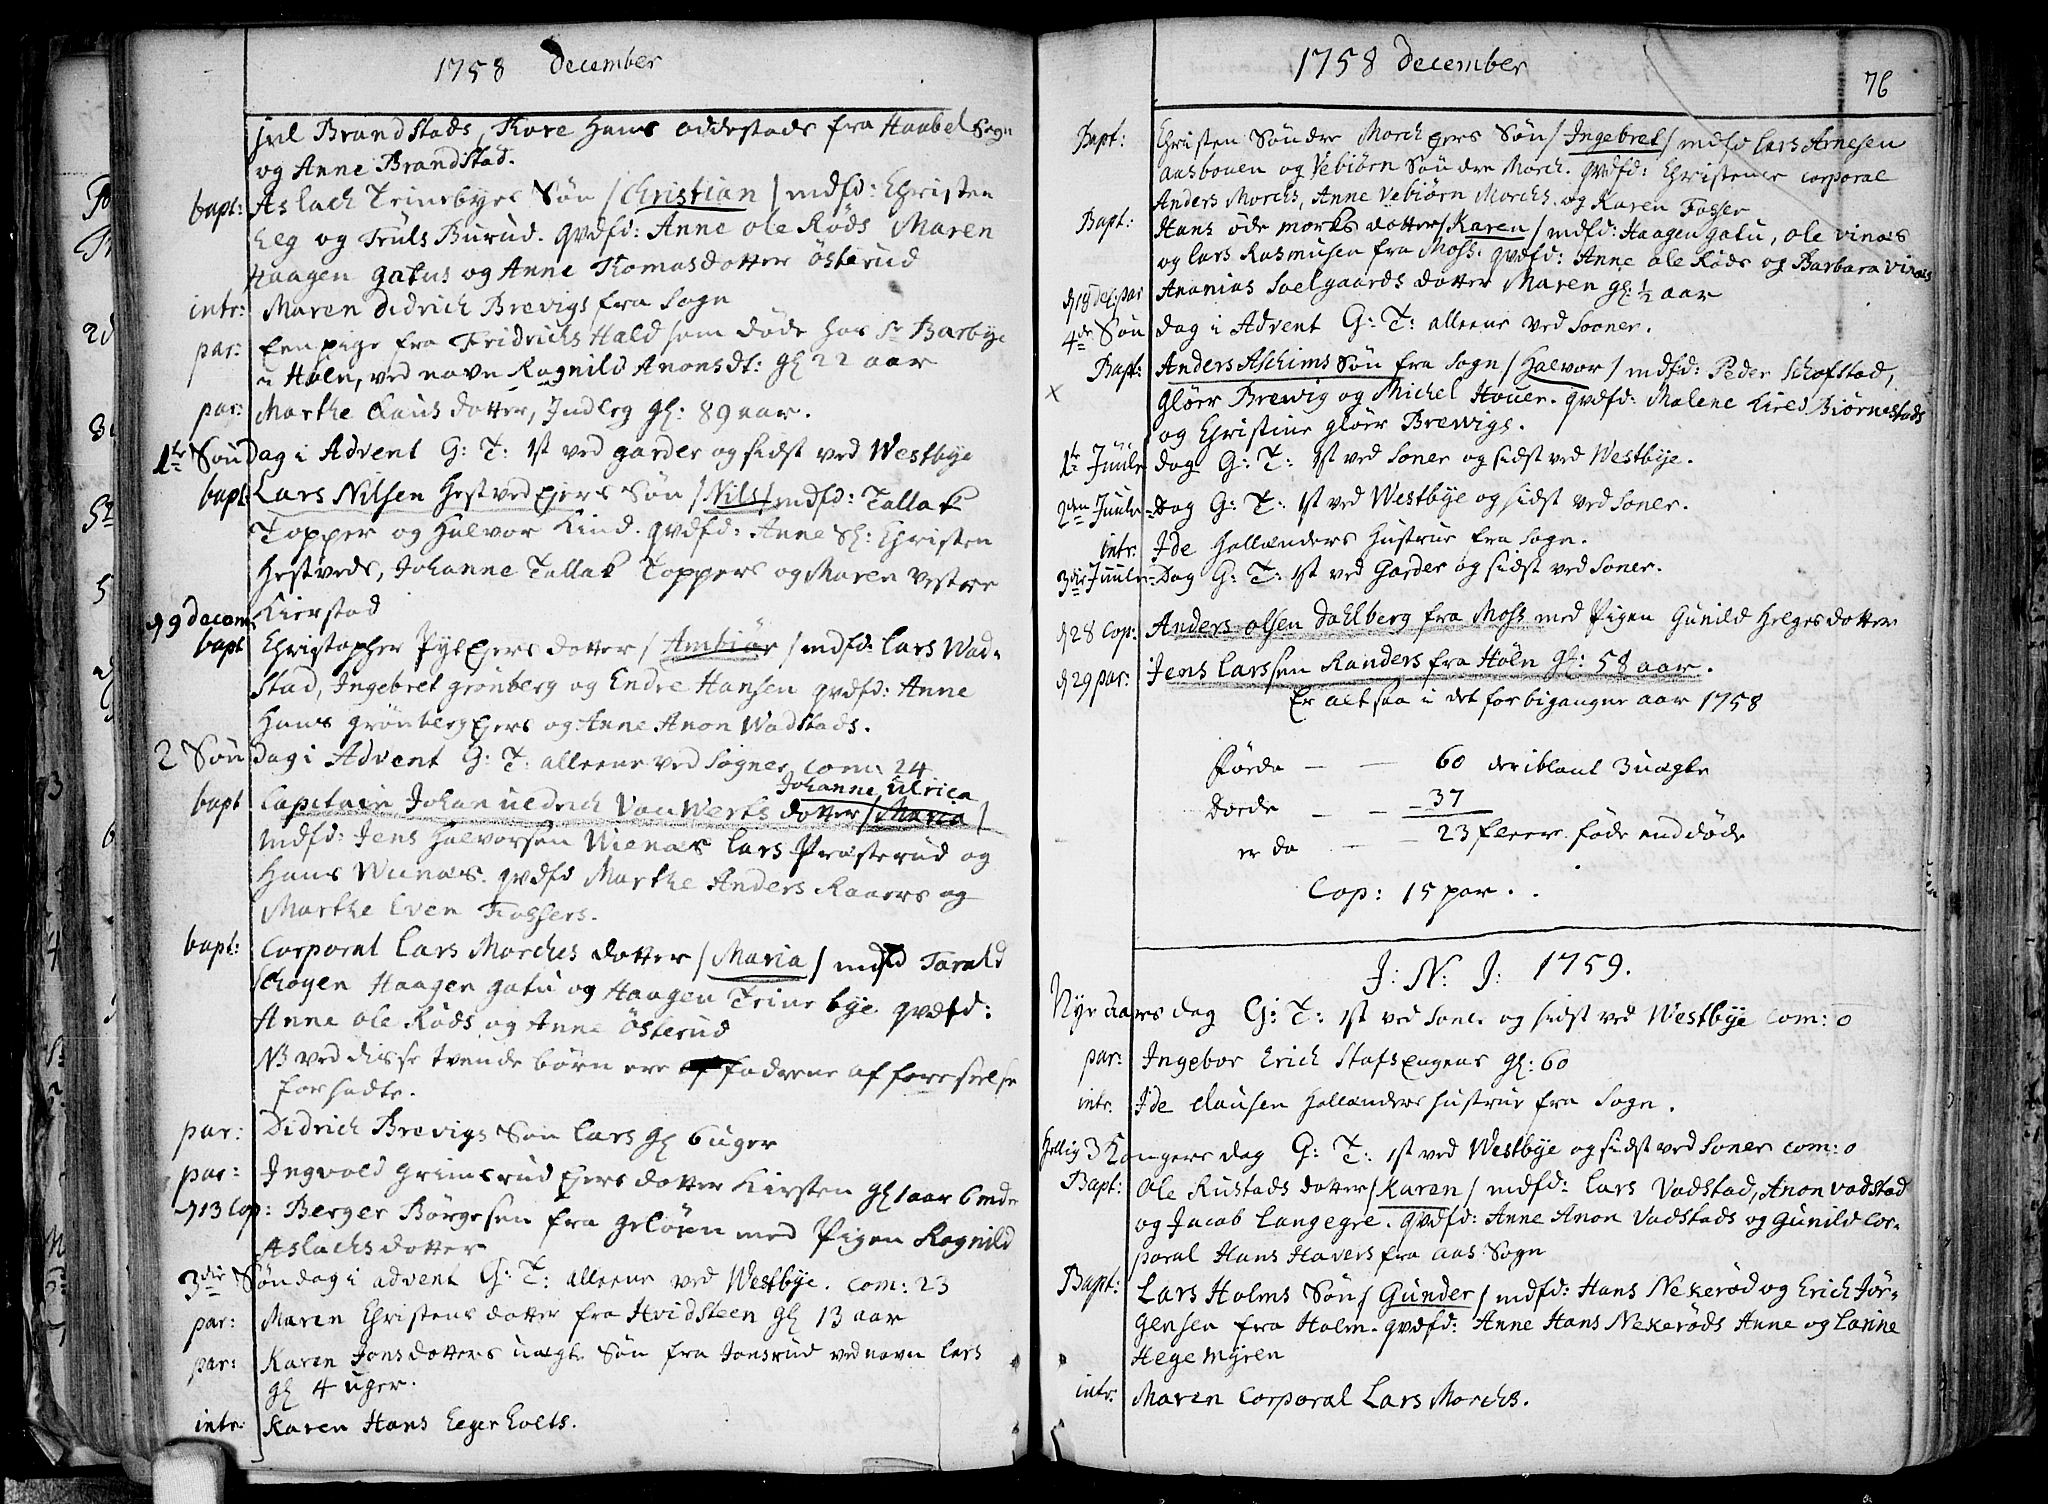 1758 December
Brandstads, Thore Hans Oddestads fra Haabel Sogn
og Anne Brandstad.
bapt: Aslach Trinebyes Søn / Christian / mdfd: Christen
Eeg og Truls Burud. qvdfd: Anne Ole Røds Maren
Haagen gatus og Anne Thomasdotter Österud
intr: Maren Didrich Brevigs fra Sogn
par: Een pige fra Fridrichs Hald som døde hos Sr Barbye
i Høln, ved navn Ragnild Anonsdt: gl 22 aar
par: Marthe Clausdotter, Indleg gl: 89 aar.
1te Søndag i Advent G: T: 1st ved garder og sidst ved Westbye
bapt: Lars Nilsen Hestved Ejers Søn / Nils / mdfd: Tallak
Topper og Halvor Kind. qvdfd: Anne Sl: Christen
Hestveds, Johanne Tallak Toppers og Maren vestre
Kierstad
d 9 decem:
bapt Christopher Pyl Ejers dotter / Ambiør / mdfd: Lars Wad-
stad, Ingebret grønberg og Endre Hansen qvdfd: Anne
Hans Grønberg Ejers og Anne Anon Wadstads.
2 Søndag i Advent G: T: alleene ved Sogner com: 24
Johanne Ulrica
bapt Capitain Johan Uldrich Van Werks dotter / Maria /
mdfd: Jens Halvorsen Vienæs Lars Præsterud og
Hans Wiinæs. qvdfd Marthe Anders Raaers og
Marthe Even Fossers.
bapt: Corporal Lars Morchs dotter / Maria / mdfd Tarald
Schøyen Haagen gatu og Haagen Trinebye. qvdfd:
Anne Ole Røds og Anne Österud
NB ved disse tvende børn ere fadrene af forseelse
forsadte.
par: Didrich Brevigs Søn Lars gl 6 uger
par: Ingvold Grimsrud Ejers dotter Kirsten gl 1 aar 6 mdr
d 13 Cop: Berger Börgesen fra Geløen med Pigen Ragnild
Aslachsdotter
3die Søndag i advent G: T: alleene ved Westbye. com: 23
par: Maren Christensdotter fra Hvidsteen gl 13 aar
par: Karen Jonsdotters uægte Søn fra Jonsrud ved navn Lars
gl 4 uger.
intr: Karen Hans Eegerholts.
1758 December
76
Bapt: Christen Søndre Morch Ejers Søn / Ingebret / mdfd Lars Arnesen
aasbouen og Vebiørn Søndre Morch. qvdfd: Christence corporal
Anders Morchs, Anne Vebiørn Morchs. og Karen Fosser
Bapt: Hans Øde morks dotter / Karen / mdfd: Haagen gatu, Ole vinæs
og Lars Rasmusen fra Moss. qvdfd: Anne Ole Røds og Barbara Vinæs
d 18 de: par Ananias Soelgaards dotter Maren gl: 1/2 aar
4de Søndag i Advent G: T: alleene ved Sooner.
Bapt: Anders Aschims Søn fra Sogn / Halvor / mdfd: Peder Schofstad,
x
Gløer Brewig og Michel Houer. qvdfd: Malene Kield Biørnestads
og Christine Gløer Brewigs.
1te Juule dag G: T: 1st ved Soner og sidst ved Westbye.
2den Juule-Dag G: T: 1st ved Westbye og sidst ved Soner.
intr: Ide Hollænders Hustrue fra Sogn.
3die Juule-Dag G: T: 1st ved Garder og sidst ved Soner.
d 28 Cop: Anders Olsen Dahlberg fra Moss med Pigen Gunild Helgesdotter
d 29 par: Jens Larssen Randers fra Höln gl: 58 aar.
Er altsaa i det forbigangne aar 1758
Födde — — 60 deriblant 3 uægte
Døede — — 37
er da — — 23 fleere føde end døde
Cop: 15 par.
J: N: J: 1759.
Nye Aars dag G: T: 1st ved Soner og sidst ved Westbye com: 0
par: Ingebor Erich Stafs Engens gl: 60
intr: Ide Clausen Hollænders Hustrue fra Sogn.
Hellig 3 Kongers dag G: T: 1st ved Westbye og sidst ved Soner com: 0
Bapt: Ole Rustads dotter / Karen / mdfd: Lars Vadstad, Anon vadstad
og Jacob Langegre. qvdfd: Anne Anon Vadstads og Gunild Cor-
poral Hans Havers fra Aas Sogn
Bapt: Lars Holms Søn / Gunder / mdfd: Hans Nekerød og Erich Jör-
gensen fra Holm. qvdfd: Anne Hans Nekerøds Anne og Larine
Hegemyren
intr: Maren Corporal Lars Morchs.